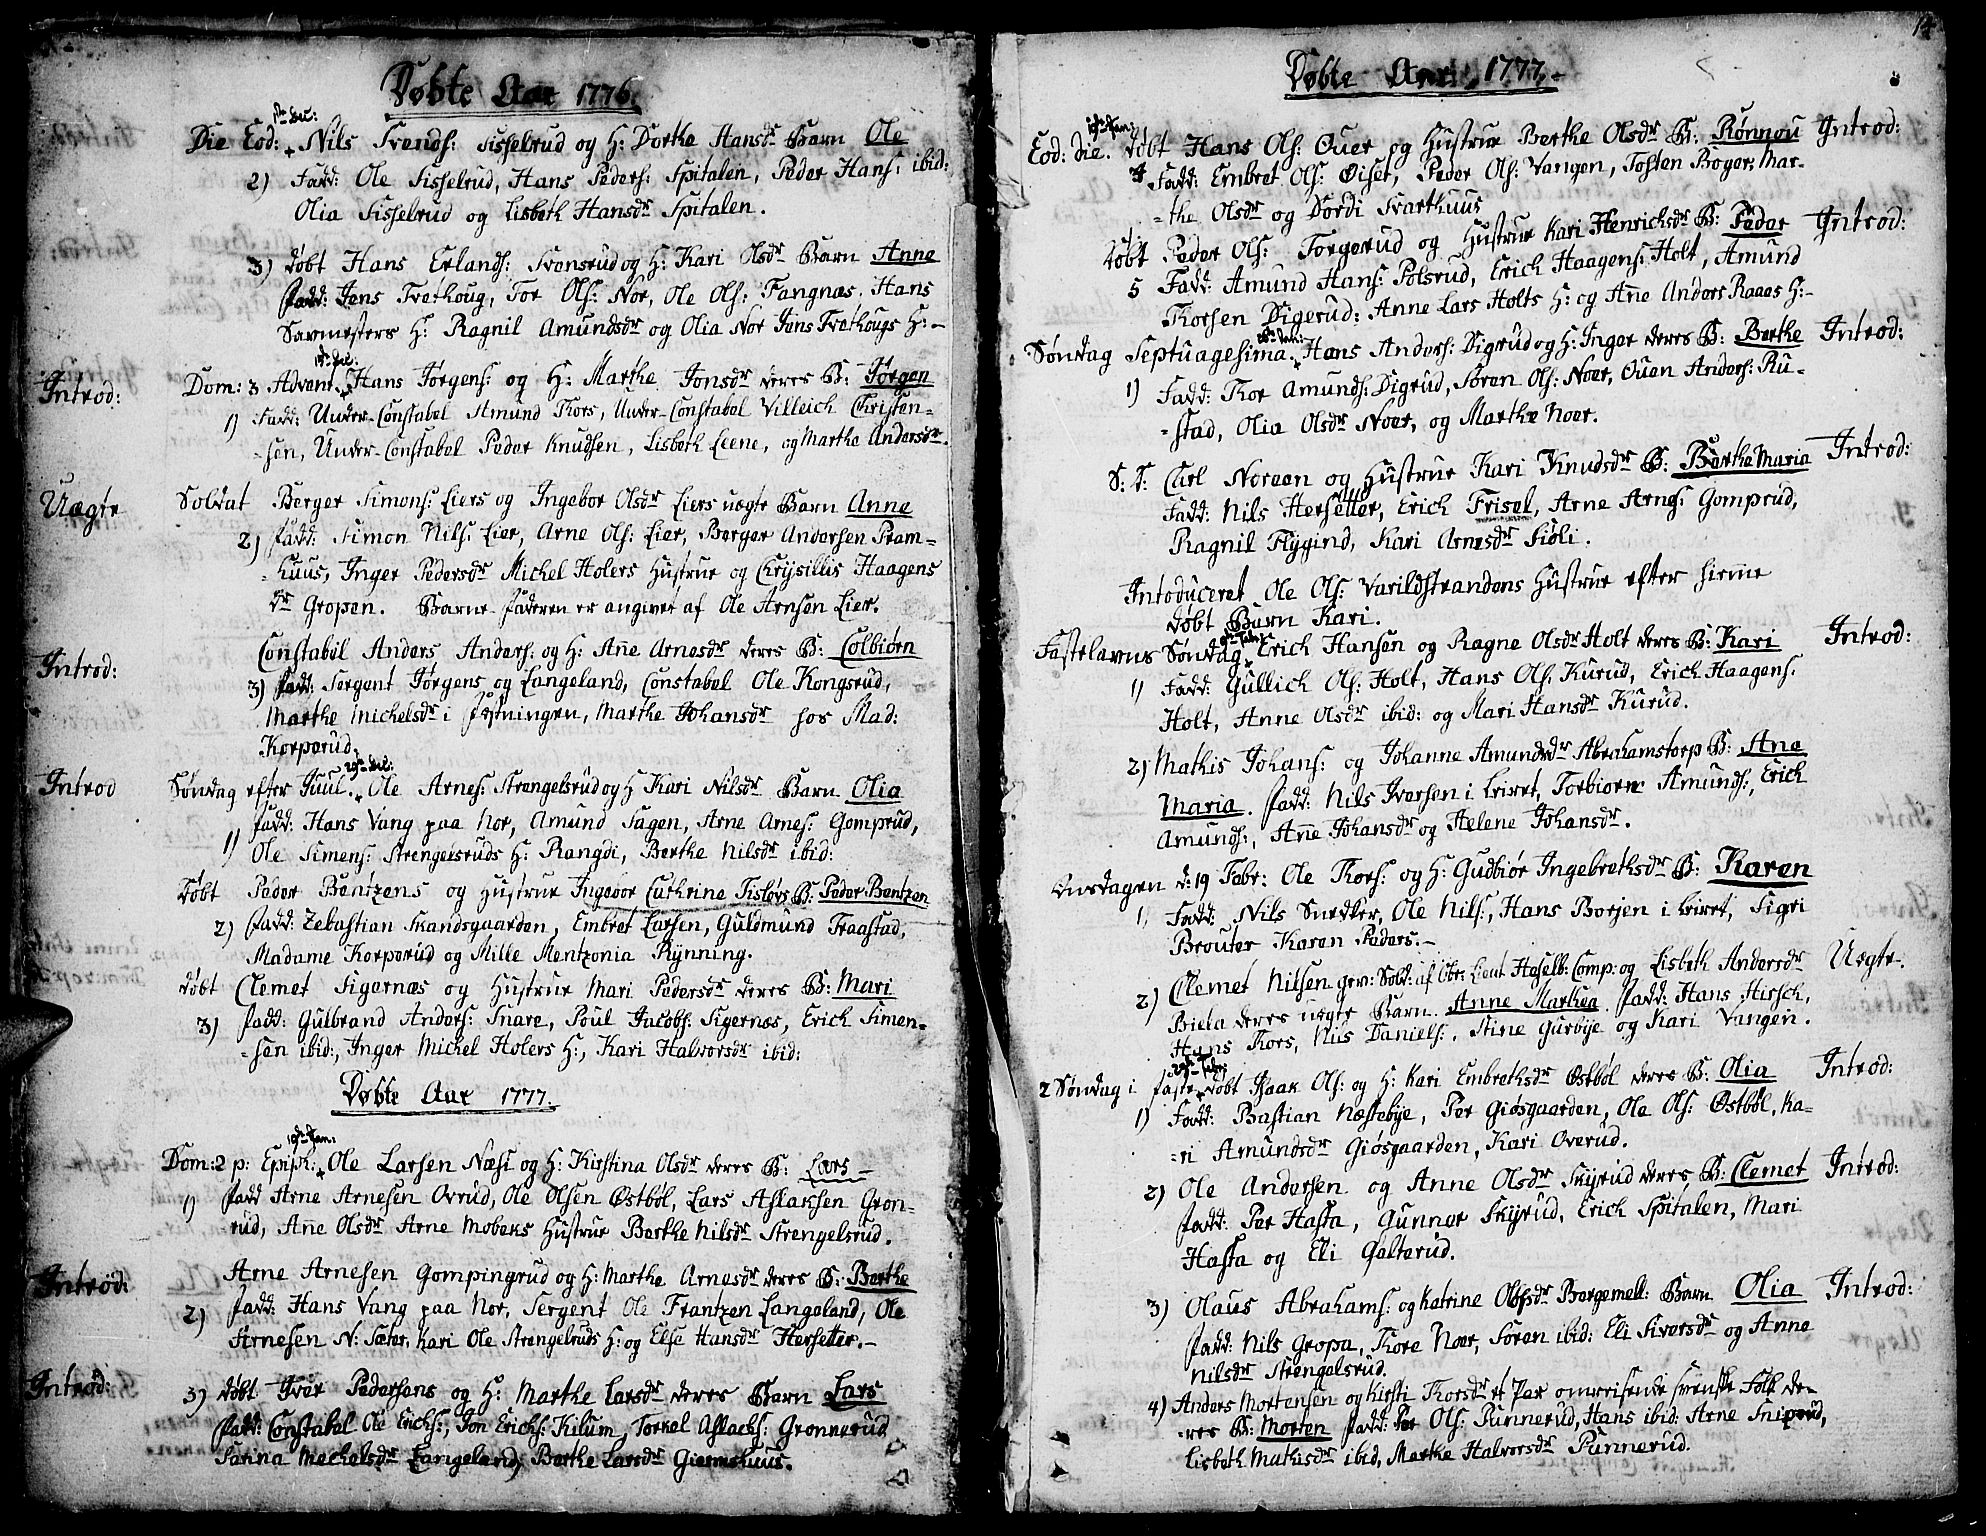 Døbte Aar 1776.
1ste Dec:
Die Eod: Nils Svends: Sisselrud og H: Dorthe Hansdr Barn Ole
2) Fadd: Ole Sisselrud, Hans Peders: Spitalen, Peder Hans: ibid:
Olia Sisselrud og Lisbeth Hansdr Spitalen.
3) døbt Hans Erlands: Svensrud og H: Kari Olsdr Barn Anne
Fadd: Jens Trethoug, Tor Ols: Nor, Ole Ols: Fangnæs, Hans
Savmesters H: Ragnil Amundsdr og Olia Nor Jens Trethougs H:
Introd: Dom: 3 Advent. Hans Jørgens: og H: Marthe Jonsdr deres B: Jørgen
1) Fadd: Under-Constabel Amund Thors, Under-Constabel Villeich Christen-
-sen, Under-Constabel Peder Knudsen, Lisbeth Leene, og Marthe Andersdr.
Uægte Soldat Berger Simons: Liers og Ingebor Olsdr Liers uægte Barn Anne
2) Fadd: Simon Nils: Lier, Arne Ols: Lier, Berger Andersen Pram-
-huus, Inger Pedersdr Michel Holers Hustrue og Chrysillis Haagens
dr Gropen. Barne-Faderen er angivet af Ole Arnsen Lier.
Introd: Constabel Anders Anders: og H: Añe Arnesdr deres B: Colbiørn
3) Fadd: Sergent Jørgens og Langeland, Constabel Ole Kongsrud,
Marthe Michelsdr i Fæstningen, Marthe Johansdr hos Mad:
Korperud.
29de Dec:
Introd Søndag efter Juul. Ole Arnes: Strengelsrud og H Kari Nilsdr Barn Olia
1) Fadd: Hans Vang paa Nor, Amund Sagen, Arne Arnes: Gomprud,
Ole Simens: Strengelsruds H: Rangdi, Berthe Nilsdr ibid:
Døbt Peder Bentzens og Hustrue Ingebor Cathrine Tislørs B: Peder Bentzen
2) Fadd: Zebastian Skandsgaarden, Embret Larsen, Guldmund Fraastad,
Madame Korperud og Mille Mentzonia Rynning.
døbt Clemet Sigernæs og Hustrue Mari Pedersdr deres B: Mari
3) Fadd: Gulbrand Anders: Snare, Poul Jacobs: Sigernæs, Erich Simen-
-sen ibid:, Inger Michel Holers H:, Kari Halvorsdr ibid:
Døbte Aar 1777.
19de Jan:
Dom: 2 p: Epiph: Ole Larsen Næss og H: Kirstina Olsdr deres B: Lars
1) Fadd Arne Arnesen Ovrud, Ole Olsen Østbøl, Lars Aslaksen Gron-
rud, Ane Olsdr Arne Mobeks Hustrue Berthe Nilsdr Strengelsrud.
Introd: Arne Arnesen Gompingrud og H: Marthe Arnesdr deres B: Berthe
2) Fadd: Hans Vang paa Nor, Sergent Ole Frantzen Langeland, Ole
Arnesen N: Sæter, Kari Ole Strengelsruds H: og Else Hansdr Hersetter.
Introd: 3) døbt Iver Pedersens og H: Marthe Larsdr deres Barn Lars
Fadd: Constabel Ole Erichs:, Jon Erichs: Kilum, Torkel Aslachs: Gronnerud
Sarina Mechelsdr Langeland, Berthe Larsdr Giermshuus.
14
Døbte Aar 1777.
19de Jan:
Eod: Die. døbt Hans Ols: Ouer og Hustrue Berthe Olsdr B: Rønnou Introd:
4 Fadd: Embret Ols: Øiset, Peder Ols: Vangen, Tosten Boger, Mar-
-the Olsdr og Dordi Svarthuus
Døbt Peder Ols: Torgerud og Hustrue Kari Henrichsdr B: Peder Introd:
5 Fadd: Amund Hans: Polsrud, Erich Haagens: Holt, Amund
Thorsen Digerud: Anne Lars Holts H: og Añe Anders Raaes H:
26de Jan:
Søndag Septuagesima. Hans Anders: Digrud og H: Inger deres B: Berthe Introd:
1) Fadd: Thor Amunds: Digrud, Søren Ols: Noer, Ouen Anders: Ru-
-stad, Olia Olsdr Noer, og Marthe Noer.
S: D: Carl Noreen og Hustrue Kari Knudsdr B: Berthe Maria Introd:
Fadd: Nils Hersetter, Erich Frisel, Arne Arnes: Gomprud,
Ragnil Flygind, Kari Arnesdr Fiøli.
Intoduceret Ole Ols: Varildstrandens Hustrue efter hiemme
døbt Barn Kari.
9de Febr:
Fastelavns Søndag. Erich Hansen og Ragne Olsdr Holt deres B: Kari Introd:
1) Fadd: Gullich Ols: Holt, Hans Ols: Kurud, Erich Haagens:
Holt, Anne Olsdr ibid: og Mari Hansdr Kurud.
2) Mathis Johans: og Johanne Amundsdr Abrahamstorp B: Ane
Maria. Fadd: Nils Iversen i Leiret, Torbiørn Amunds:, Erich
Amunds:, Añe Johansdr og Helene Johansdr.
Onsdagen d: 19 Febr: Ole Thors: og H: Gudbiør Ingebrethsdr B: Karen
1) Fadd: Nils Snedker, Ole Nils:, Hans Borjen i Leiret, Sigri
Brouter Karen Peders.
2) Clemet Nilsen gev: Sold: af Obr: Lieut Hesselb: Comp: og Lisbeth Andersdr Uegte.
Bieta deres uægte Barn. Anne Marthea. Fadd: Hans Hirsch,
Hans Thors, Nils Daniels:, Stine Gurbye og Kari Vangen.
2 Søndag i Faste. døbt Isaak Ols: og H: Kari Embrethsdr Østbøl deres B: Olia Introd:
1) Fadd: Bastian Næstebye, Per Giøsgaarden, Ole Ols: Østbøl, Ka-
-ri Amundsdr Giøsgaarden, Kari Overud.
2) Ole Andersen og Anne Olsdr Skyrud deres B: Clemet Introd:
Fadd: Per Hasta, Gunner Skyrud, Erich Spitalen, Mari
Hasta og Eli Galterud.
3) Olaus Abrahams: og Katrine Olufsdr Bergemell: Barn Olia Introd:
Fadd: Nils Gropa, Thore Noer, Søren ibid: Eli Siversdr og Anne
Nilsdr Strengelsrud.
4) Anders Mortensen og Kirsti Thorsdr et Par omreisende svenske Folk de-
-res B: Morten Fadd: Per Ols: Punnerud, Hans ibid: Arne Sniprud,
Lisbeth Mathisdr ibid, Marthe Halvorsdr Punnerud.